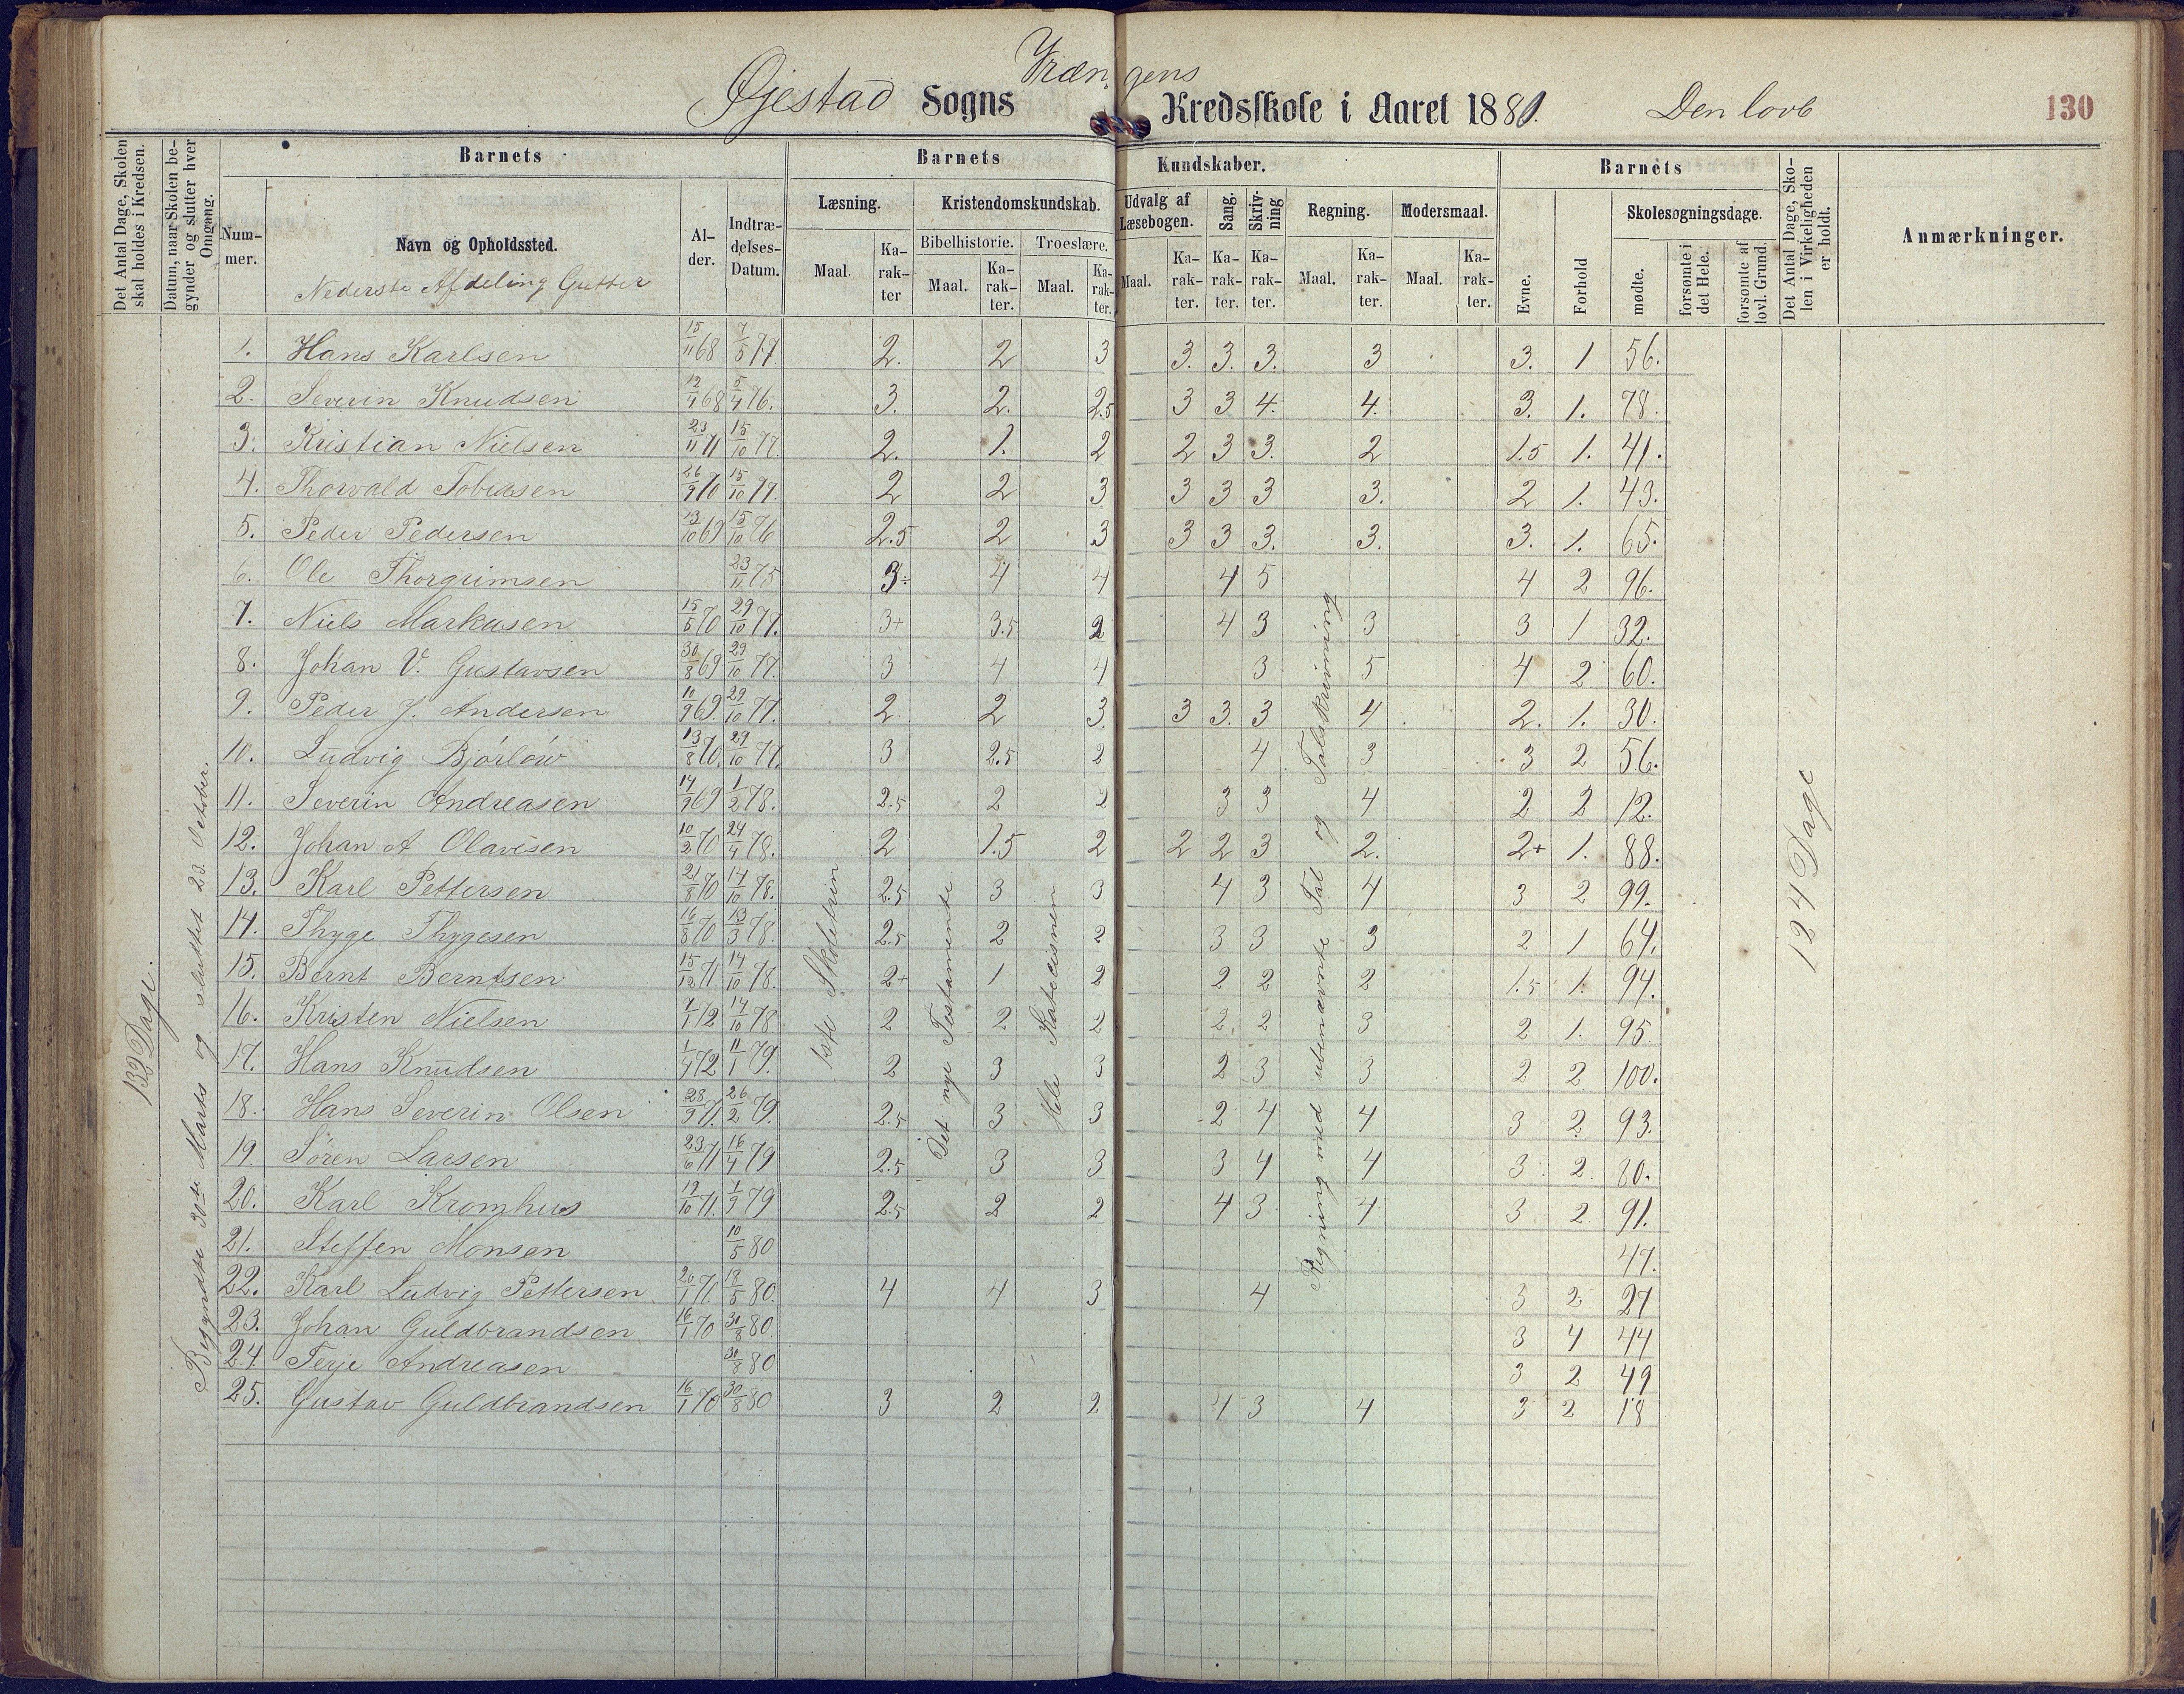 Vrængens
Øjestad Sogns Kredsskole i Aaret 1881. Den lovb 130
Det Antal Dage, Skolen skal holdes i Kredsen.
Datum, naar Skolen begynder og slutter hver Omgang.
Barnets Barnets Kundskaber. Barnets
Nummer. Navn og Opholdssted. Alder. Indtrædelses-Datum.
Læsning. Kristendomskundskab. Udvalg af Læsebogen. Sang. Skrivning Regning. Modersmaal.
Bibelhistorie. Troeslære.
Maal. Karakter Maal. Karakter. Maal. Karakter. Maal. Karakter. Karakter. Karakter. Maal. Karakter. Maal. Karakter.
Evne. Forhold Skolesøgningsdage. mødte. forsømte i det Hele. forsømte af lovl. Grund.
Det Antal Dage, Skolen i Virkeligheden er holdt.
Anmærkninger.
Nederste Afdeling Gutter
132 Dage.
Begyndte 30te Marts og sluttet 23. October.
1ste Skoletrin
Det nye Testamente
Hele Katecismen
Regning med ubenævnte Tal og Talskrivning
124 Dage
1. Hans Karlsen 15/11 68 7/5 77. 2. 2 3 3. 3. 3. 3 3. 1 56.
2. Severin Knudsen 12/4 68 5/4 76. 3. 2. 2.5 3 3 4. 4. 3. 1. 78.
3. Kristian Nielsen 23/11 71 15/10 77. 2. 1. 2 2 3 3. 2 1.5 1. 41.
4. Thorvald Tobiasen 26/9 70 15/10 77. 2 2 3 3 3 3 3. 2 1. 43.
5. Peder Pedersen 13/10 69 15/10 76 2.5 2 3 3 3 3. 3. 3. 1. 65.
6. Ole Thorgrimsen 23/11 75 3÷ 4 4 4 5 4 2 96.
7. Niels Markusen 15/5 70 29/10 77. 3+ 3.5 2 4 3 3 3 1 32.
8. Johan V. Gustavsen 30/8 69 29/10 77. 3 4 4 3 5 4 2 60.
9. Peder J. Andersen 10/9 69. 29/10 77. 2. 2 3. 3 3. 3 4 2. 1. 30.
10. Ludvig Bjørlow 13/8 70. 29/10 77. 3 2.5 2 4 3 3 2 56.
11. Severin Andreasen 14/9 69 1/2 78. 2.5 2 2 3 3 4 2 2 12.
12. Johan A Olavesen 10/2 70 24/4 78. 2 1.5 2 2 2 3 2. 2+ 1. 88.
13. Karl Pettersen 21/8 70 14/10 78. 2.5 3 3 4 3 4 3 2 99.
14. Thyge Thygesen 16/8 70 13/3 78. 2.5 2 2 3 3 3 2 1 64.
15. Bernt Berntsen 15/12 71. 14/10 78. 2+ 1 2 2 2 2 1.5 1. 94.
16. Kristen Nielsen 7/1 72 14/10 78 2 2 2 2. 2 3 2 1. 95.
17. Hans Knudsen 1/4 72 11/1 79. 2 3 3 2 3 3 2 2 100.
18. Hans Severin Olsen 28/9 71. 26/2 79. 2.5 3 3 2 4 4 3 2 93.
19. Søren Larsen 23/6 71 16/4 79 2.5 3 3 3 4 4 3 2 80.
20. Karl Kromhus 19/10 71. 1/9 79 2.5 2 2 4 3 4 3 2 91.
21. Steffen Monsen 10/5 80 47.
22. Karl Ludvig Pettersen 20/1 71 18/5 80. 4 4 3 4 3 2 27
23. Johan Guldbrandsen 16/1 70 30/8 80. 3 4 44
24. Terje Andreasen 30/8 80 3 2 49
25. Gustav Guldbrandsen 16/1 70 30/8 80 3 2 2 4 3 4 3 2 18